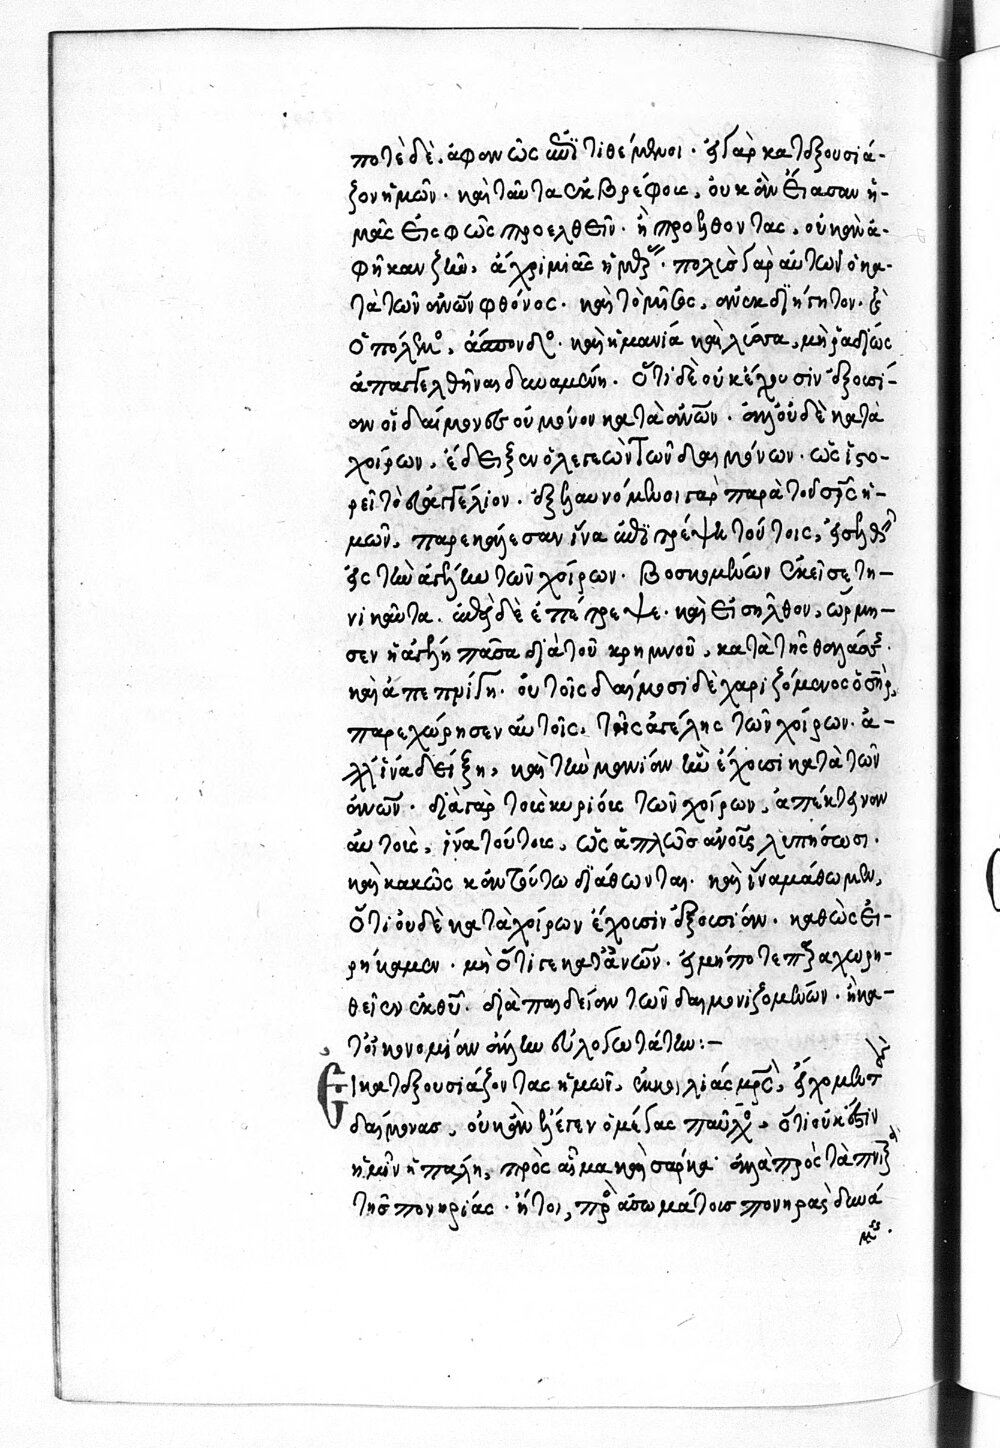 ποτὲ δὲ, ἀφανῶς ἐπιτιθέμενοι· εἰ γὰρ κατεξουσία-
ζον ἡμῶν· καὶ ταῦτα ἐκ βρέφους, οὐκ ἂν εἴασαν ἡ-
μᾶς εἰς φῶς προελθεῖν· ἢ προελθόντας, οὐκ ἂν ἀ-
φῆκαν ζῆν, ἄχρι μιᾶς ἡμέρας· πολὺς γὰρ αὐτῶν ὁ κα-
τὰ τῶν ἀνθρώπων φθόνος· καὶ τὸ μῖσος, ἀνεκδιήγητον· καὶ
ὁ πόλεμος, ἄσπονδος· καὶ ἡ μανία καὶ λύσσα, μὴ ῥαδίως
ἀπαγγελθῆναι δυναμένη. ὅτι δὲ οὐκ ἔχουσιν ἐξουσί-
αν οἱ δαίμονες οὐ μόνον κατὰ ἀνθρώπων· ἀλλ' οὐδὲ κατὰ
χοίρων, ἔδειξεν ὁ λεγεὼν τῶν δαιμόνων· ὡς ἱστο-
ρεῖ τὸ εὐαγγέλιον· ἐξελαυνόμενοι γὰρ παρὰ τοῦ σωτῆρος ἡ-
μῶν, παρεκάλεσαν ἵνα ἐπιτρέψῃ τούτοις, εἰσελθεῖν
εἰς τὴν ἀγέλην τῶν χοίρων· βοσκομένων ἐκεῖσε τη-
νικαῦτα. αὐτὸς δὲ ἐπέτρεψε· καὶ εἰσῆλθον, ὥρμη-
σεν ἡ ἀγέλη πᾶσα διὰ τοῦ κρημνοῦ, κατὰ τῆς θαλάσσης·
καὶ ἀπεπνίγη· οὐ τοῖς δαίμοσι δὲ χαριζόμενος ὁ σωτὴρ,
παρεχώρησεν αὐτοῖς, τῆς ἀγέλης τῶν χοίρων· ἀ-
λλ' ἵνα δείξῃ, καὶ τὴν μανίαν ἣν ἔχουσι κατὰ τῶν
ἀνθρώπων· διὰ γὰρ τοὺς κυρίους τῶν χοίρων, ἀπέκτειναν
αὐτοὺς, ἵνα τούτους, ὡς ἁπλῶς ἀνθρώπους λυπήσωσι·
καὶ κακῶς κἀν τούτω διάθωνται· καὶ ἵνα μάθωμεν,
ὅτι οὐδὲ κατὰ χοίρων ἔχουσιν ἐξουσίαν· καθὼς εἰ-
ρήκαμεν· μὴ ὅτι γε κατὰ ἀνθρώπων· εἰ μήποτε παραχωρη-
θεῖεν ἐκ θεοῦ· διὰ παιδείαν τῶν δαιμονιζομένων· ἢ κα-
τ' οἰκονομίαν ἄλλην εὐλογωτάτην:—
Εἰ κατεξουσιάζοντας ἡμῶν, ἐκ κοιλίας μητρὸς, εἴχομεν τοὺς
δαίμονας, οὐκ ἂν ἔλεγεν ὁ μέγας παῦλος, ὅτι οὐκ ἔστιν
ἡμῖν ἡ πάλη, πρὸς αἷμα καὶ σάρκα· ἀλλὰ πρὸς τὰ πνευματικὰ
τῆς πονηρίας· ἤτοι, πρὸς ἀσωμάτους πονηρὰς δυνά
μεις.